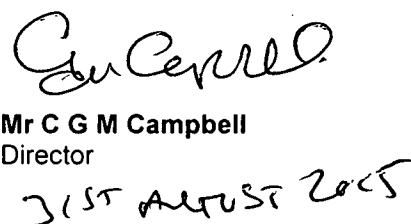 Mr C G M Campbell
Director
31ST AUGUST